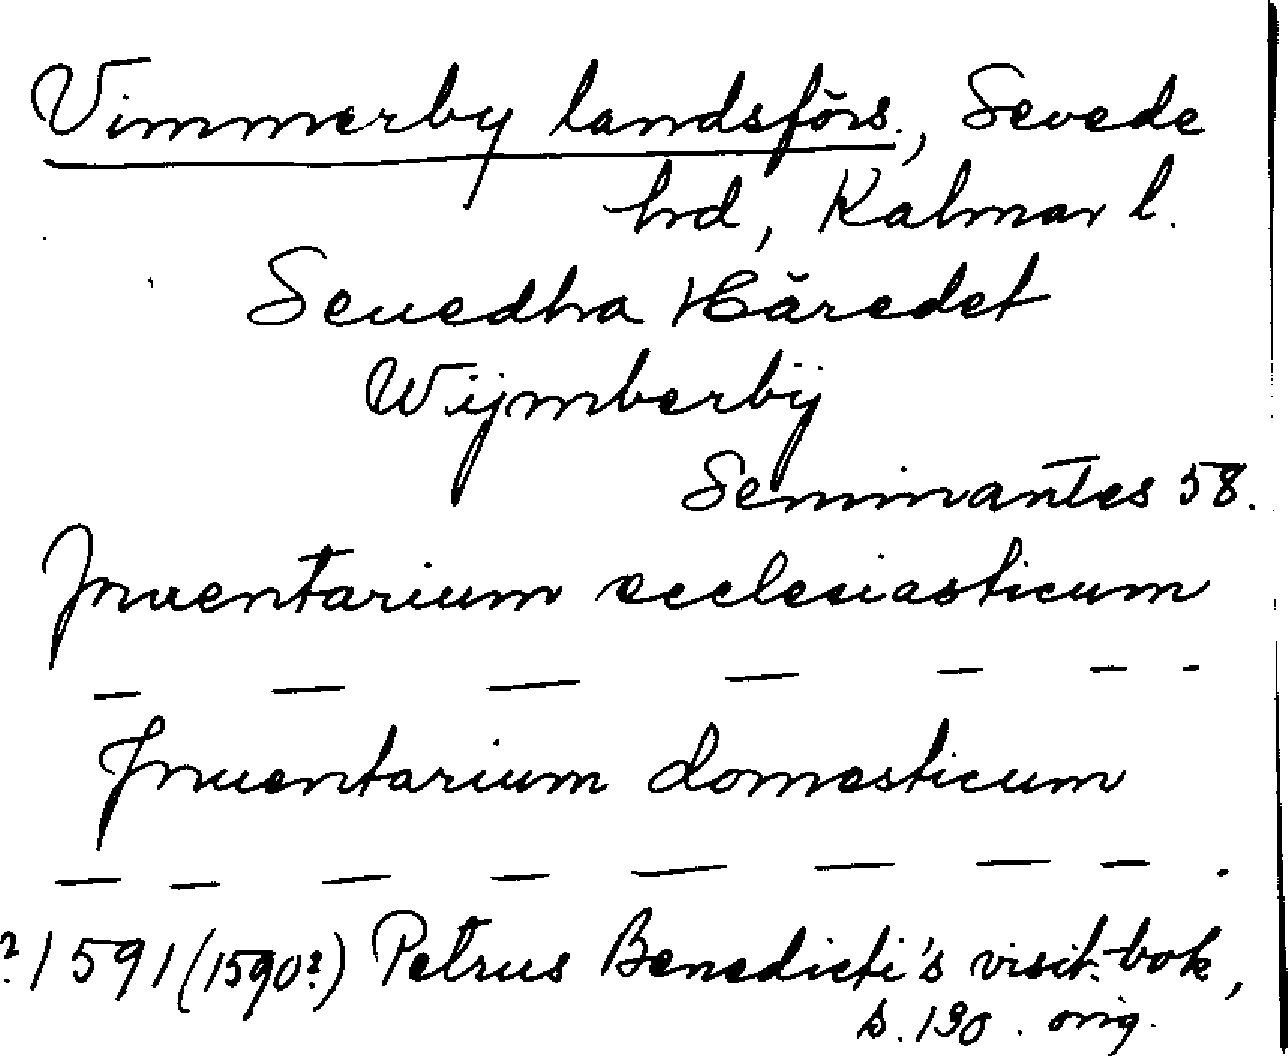 Vimmerby landsförs., Sevede
hd, Kalmar l.
Seuedha Häredet
Wijmberbÿ
Seminantes 58.
Inuentarium ecclesiasticum
— — — — — — -
Inuentarium domesticum
— — — — — — — — .
? 1591 (1590?) Petrus Benedicti's visit.-bok,
s. 190. orig.